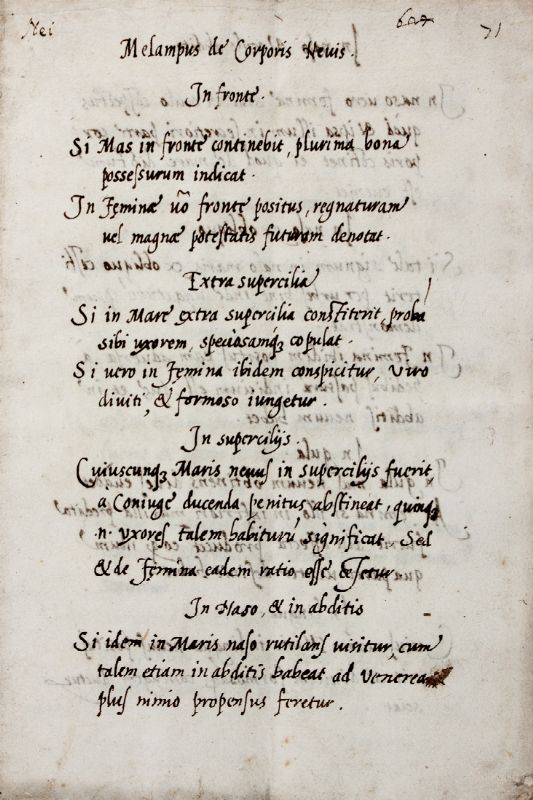 Nei 71
Melampus de Corporis Nevis.
In fronte.
Si Mas in fronte continebit, plurima bona
possessurum indicat.
In Fęminæ uō fronte positus, regnaturam
uel magnæ potestatis futuram denotat.
Extra supercilia
Si in Mare extra supercilia constiterit, probā
sibi uxorem, speciosamqꝫ copulat.
Si uero in Fęmina ibidem conspicitur, Viro
diuiti, & formoso iungetur.
In supercilijs.
Cuiuscunqꝫ Maris neuus in supercilijs fuerit
a Coniuge ducenda penitus abstineat, quinqꝫ
.n. uxores talem habiturū significat. Sed
& de Fęmina eadem ratio esse
In Naso, & in abditis
Si idem in Maris naso rutilans uisitur, cum
talem etiam in abditis habeat ad Venerea
plus nimio propensus feretur.